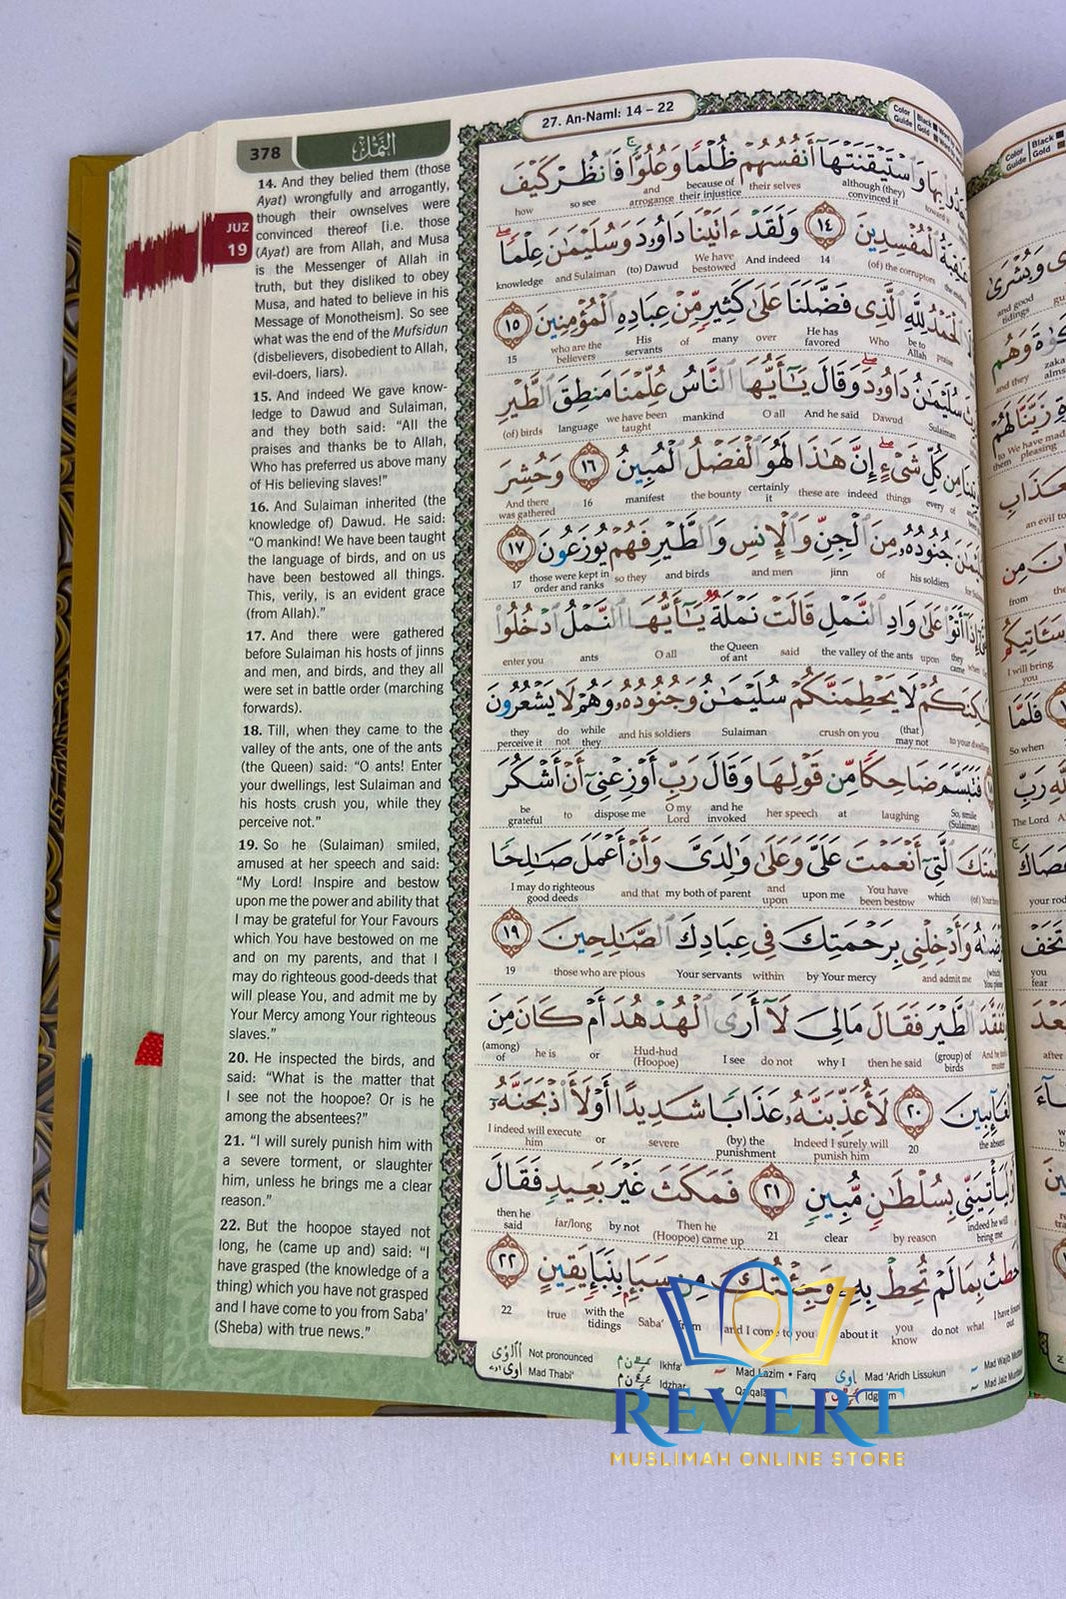 378
النمل
27. An-Naml: 14 – 22
Color Guide
JUZ
19
14. And they belied them (those
Ayat) wrongfully and arrogantly,
though their ownselves were
convinced thereof [i.e. those
(Ayat) are from Allah, and Musa
is the Messenger of Allah in
truth, but they disliked to obey
Musa, and hated to believe in his
Message of Monotheism]. So see
what was the end of the Mufsidun
(disbelievers, disobedient to Allah,
evil-doers, liars).
15. And indeed We gave know-
ledge to Dawud and Sulaiman,
and they both said: “All the
praises and thanks be to Allah,
Who has preferred us above many
of His believing slaves!”
16. And Sulaiman inherited (the
knowledge of) Dawud. He said:
“O mankind! We have been taught
the language of birds, and on us
have been bestowed all things.
This, verily, is an evident grace
(from Allah).”
17. And there were gathered
before Sulaiman his hosts of jinns
and men, and birds, and they all
were set in battle order (marching
forwards).
18. Till, when they came to the
valley of the ants, one of the ants
(the Queen) said: “O ants! Enter
your dwellings, lest Sulaiman and
his hosts crush you, while they
perceive not.”
19. So he (Sulaiman) smiled,
amused at her speech and said:
“My Lord! Inspire and bestow
upon me the power and ability that
I may be grateful for Your Favours
which You have bestowed on me
and on my parents, and that I
may do righteous good-deeds that
will please You, and admit me by
Your Mercy among Your righteous
slaves.”
20. He inspected the birds, and
said: “What is the matter that
I see not the hoopoe? Or is he
among the absentees?”
21. “I will surely punish him with
a severe torment, or slaughter
him, unless he brings me a clear
reason.”
22. But the hoopoe stayed not
long, he (came up and) said: “I
have grasped (the knowledge of a
thing) which you have not grasped
and I have come to you from Saba'
(Sheba) with true news.”
وَاسْتَيْقَنَتْهَا أَنْفُسُهُمْ ظُلْمًا وَعُلُوًّا فَانْظُرْ كَيْفَ
although (they) convinced it their selves because of their injustice and arrogance so see how
الْمُفْسِدِينَ ١٤ وَلَقَدْ ءَاتَيْنَا دَاوُۥدَ وَسُلَيْمَٰنَ عِلْمًا
(of) the corruptors 14 And indeed We have bestowed (to) Dawud and Sulaiman knowledge
لِلَّهِ الَّذِى فَضَّلَنَا عَلَىٰ كَثِيرٍ مِّنْ عِبَادِهِ الْمُؤْمِنِينَ ١٥
praise be to Allah Who He has favored over many of His servants who are the believers 15
سُلَيْمَٰنُ دَاوُۥدَ وَقَالَ يَٰٓأَيُّهَا النَّاسُ عُلِّمْنَا مَنطِقَ الطَّيْرِ
Sulaiman Dawud And he said O all mankind we have been taught language (of) birds
مِن كُلِّ شَىْءٍ إِنَّ هَٰذَا لَهُوَ الْفَضْلُ الْمُبِينُ ١٦ وَحُشِرَ
every of things indeed these are certainly it the bounty manifest 16 And there was gathered
جُنُودُهُۥ مِنَ الْجِنِّ وَالْإِنسِ وَالطَّيْرِ فَهُمْ يُوزَعُونَ ١٧
his soldiers of jinn and men and birds so they those were kept in order and ranks 17
إِذَا أَتَوْا عَلَىٰ وَادِ النَّمْلِ قَالَتْ نَمْلَةٌ يَٰٓأَيُّهَا النَّمْلُ ادْخُلُوا
when they came upon the valley of the ants said the Queen of ant O all ants enter you
لَا يَحْطِمَنَّكُمْ سُلَيْمَٰنُ وَجُنُودُهُۥ وَهُمْ لَا يَشْعُرُونَ
to your dwellings (that) may not crush on you Sulaiman and his soldiers while they do not they perceive it
فَتَبَسَّمَ ضَاحِكًا مِّن قَوْلِهَا وَقَالَ رَبِّ أَوْزِعْنِىٓ أَنْ أَشْكُرَ
So, smile (Sulaiman) laughing at her speech and he invoked O my Lord dispose me to be grateful
الَّتِىٓ أَنْعَمْتَ عَلَىَّ وَعَلَىٰ وَٰلِدَىَّ وَأَنْ أَعْمَلَ صَٰلِحًا
which You have been bestow upon me and upon my both of parent and that I may do righteous good deeds
وَأَدْخِلْنِى بِرَحْمَتِكَ فِى عِبَادِكَ الصَّٰلِحِينَ ١٩
and admit me by Your mercy within Your servants those who are pious 19
الطَّيْرَ فَقَالَ مَالِىَ لَآ أَرَى الْهُدْهُدَ أَمْ كَانَ مِنَ
(group) of birds then he said why I do not I see Hud-hud (Hoopoe) or he is (among) of
لَأُعَذِّبَنَّهُۥ عَذَابًا شَدِيدًا أَوْ لَأَاذْبَحَنَّهُۥٓ ٢٠
the absent 20 Indeed I surely will punish him (by) the punishment severe or I indeed will execute him
بِسُلْطَٰنٍ مُّبِينٍ ٢١ فَمَكَثَ غَيْرَ بَعِيدٍ فَقَالَ
indeed he will bring me by reason clear 21 Then he (Hoopoe) came up by not far/long then he said
بِمَا لَمْ تُحِطْ بِهِۦ وَجِئْتُكَ مِن سَبَإٍ بِنَبَإٍ يَقِينٍ ٢٢
what do not you know about it and I come to you from Saba' with the tidings true 22
Not pronounced
Mad Thabi'
Ikhfa'
Idzhar
Mad Lazim • Farq
Mad 'Aridh Lissukun
REVERT
MUSLIMAH ONLINE STORE